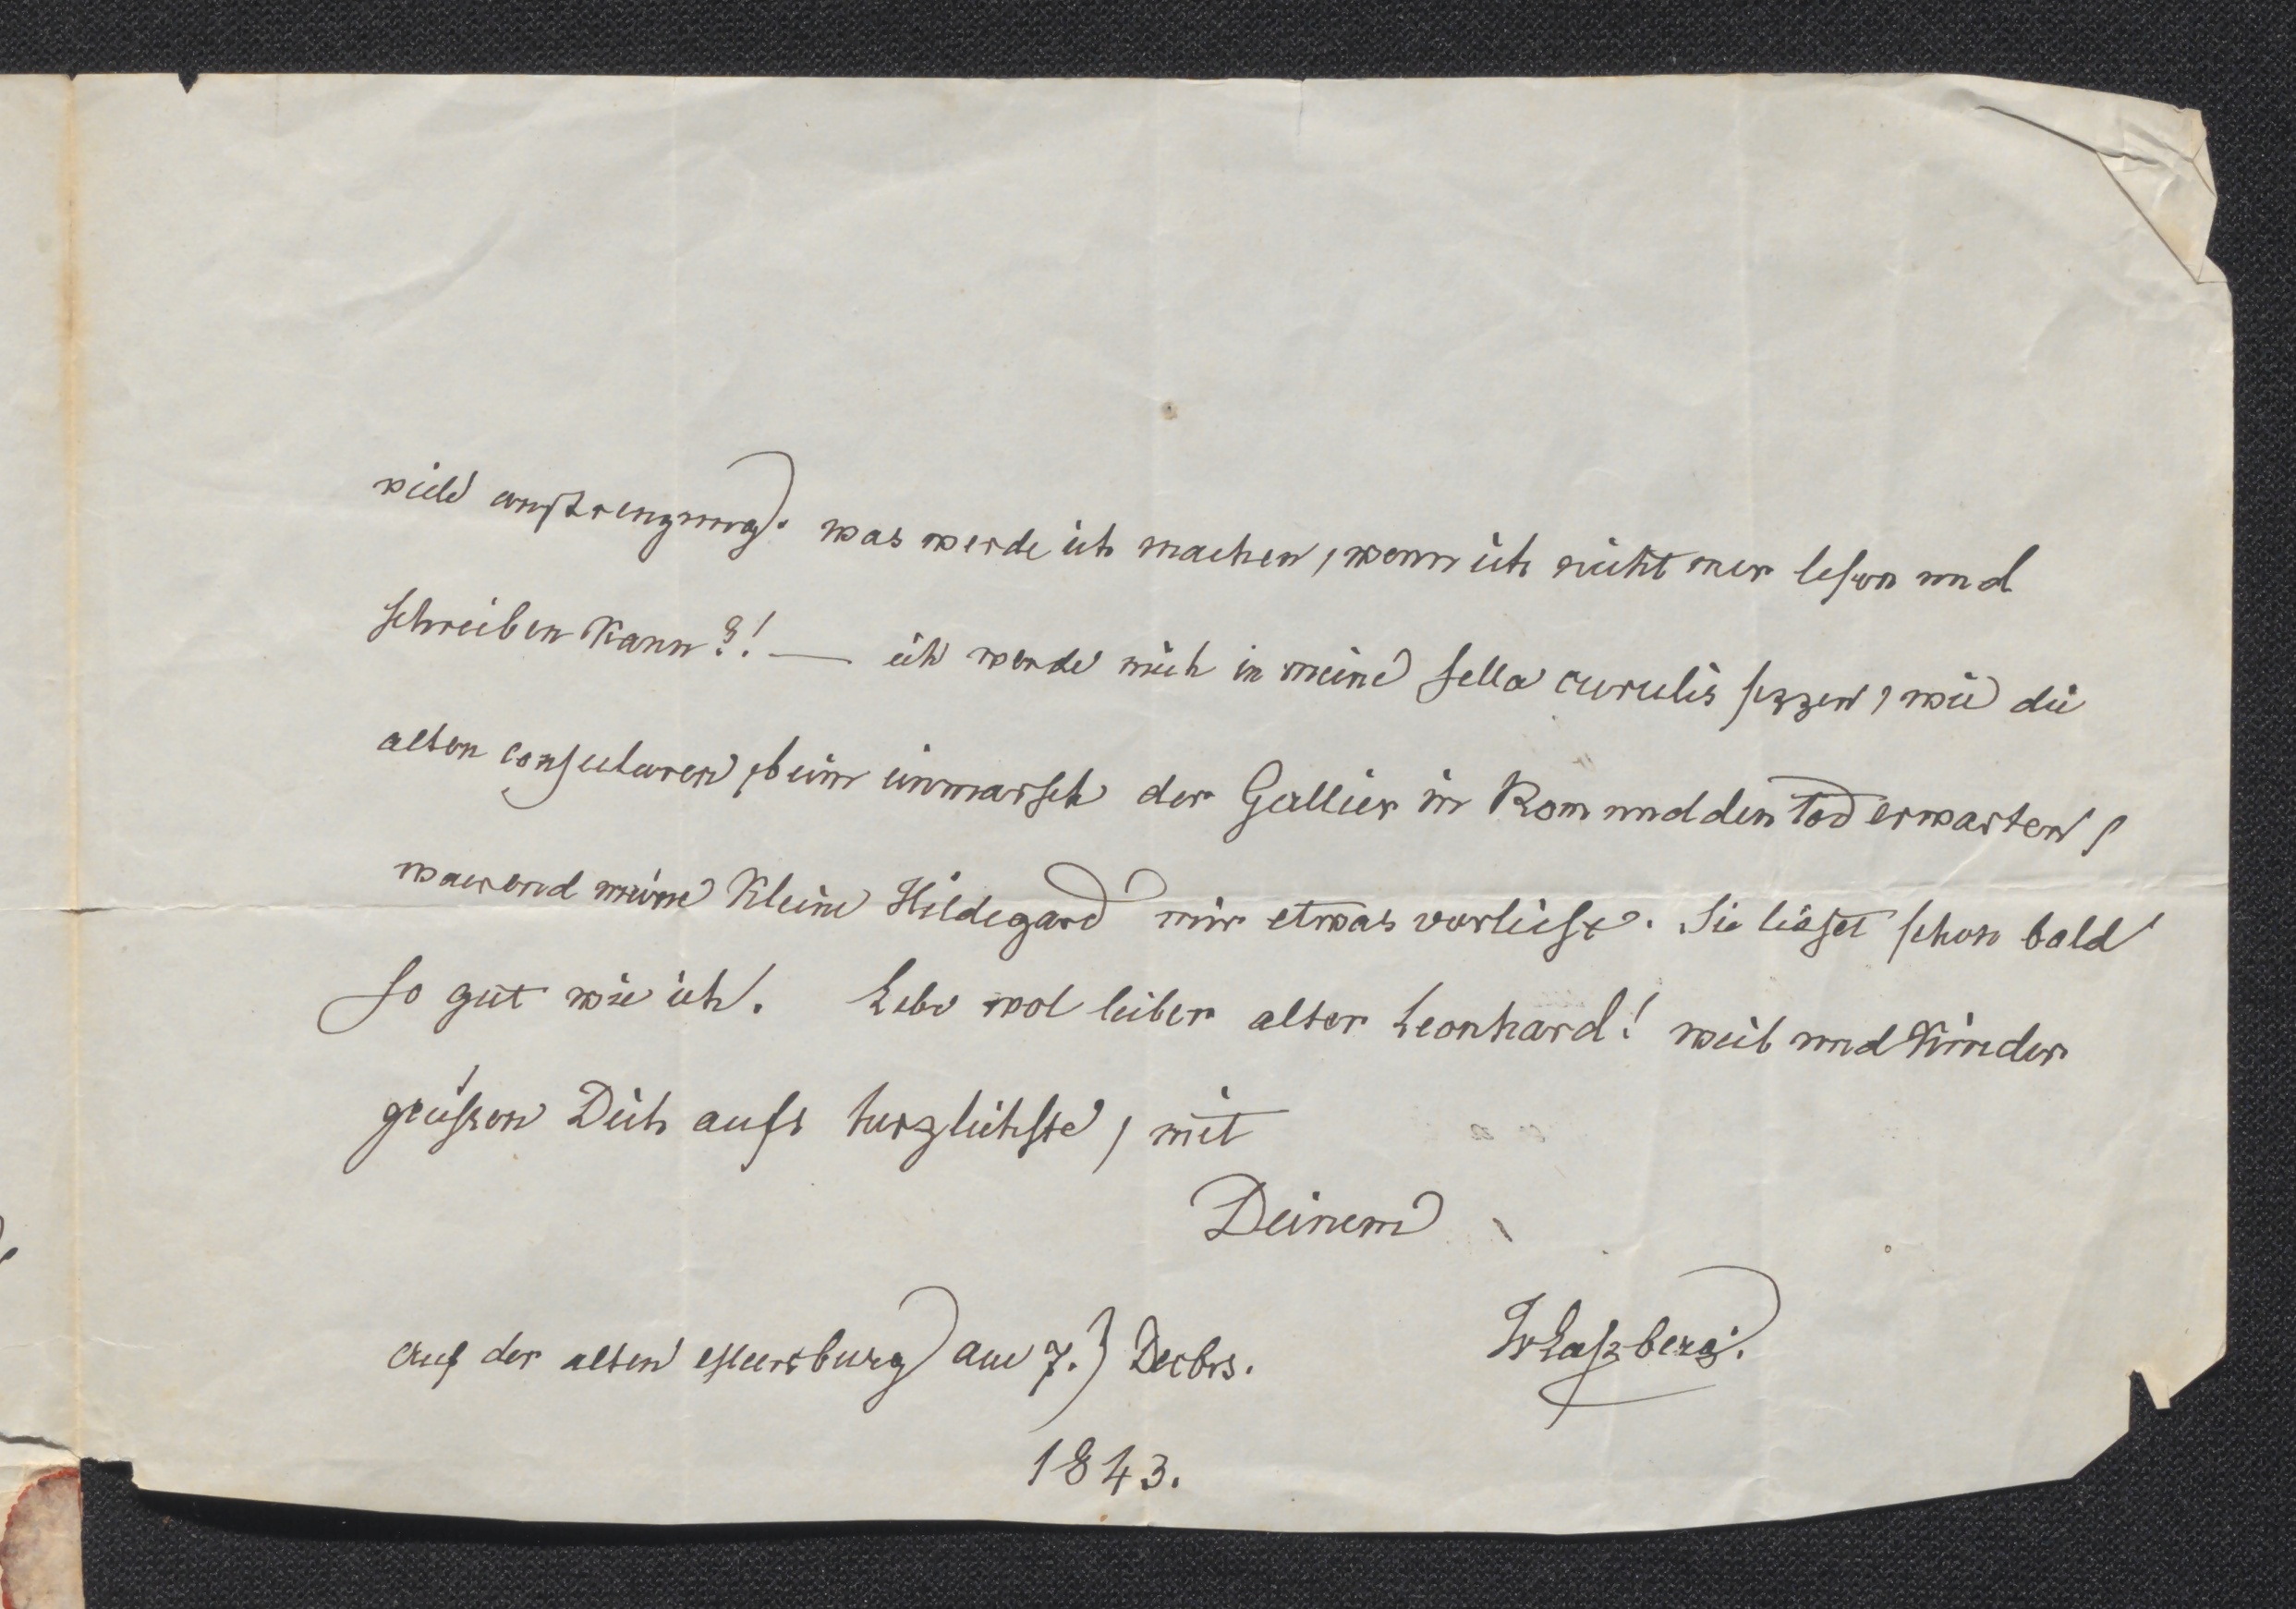 viele anstrengung. was werde ich machen, wenn ich nicht mer lesen und
schreiben kann?! — ich werde mich in meine sella curulis sezzen, wie die
alten consularen, beim einmarsch der Gallier in Rom und den Tod erwarten,
waerend meine kleine Hildegard mir etwas vorliest. Sie lieset schon bald
so gut wie ich. Lebe wol lieber alter Leonhard! weib und kinder
grüßen Dich aufs herzlichste, mit
Deinem
JvLaßberg.
auf der alten Meersburg am 7. Decbrs.
1843.